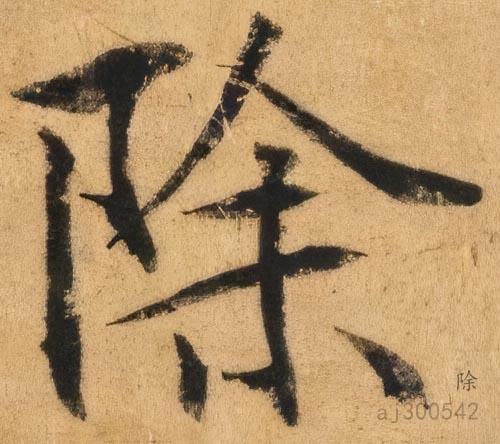 除
除
aj300542